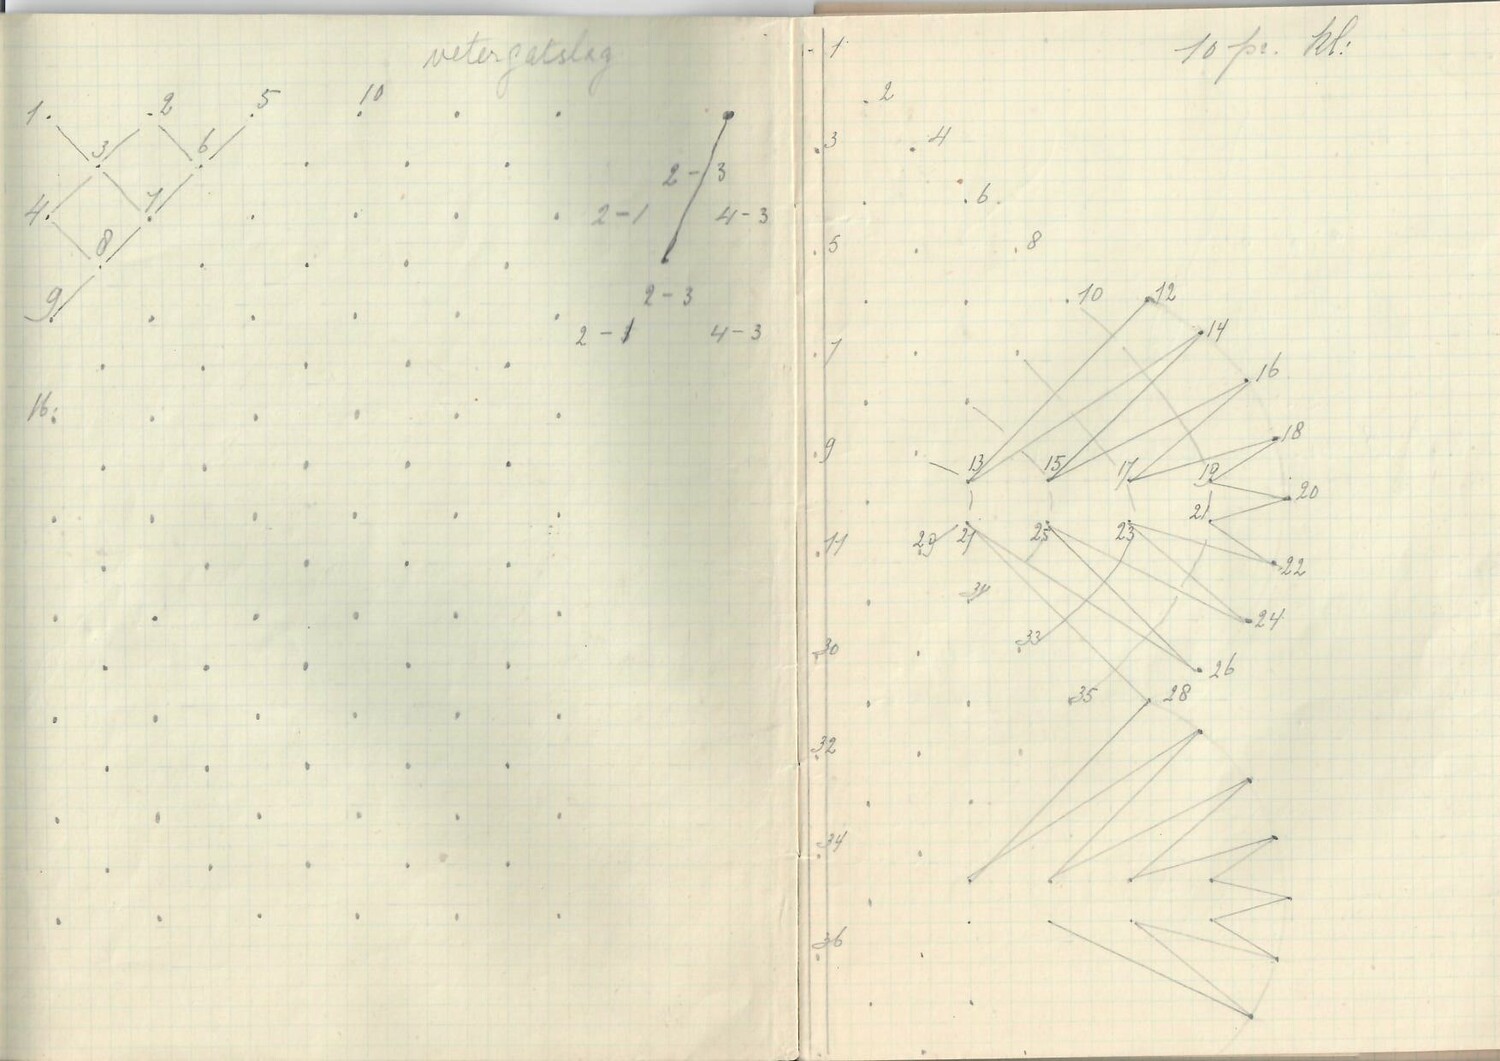 vetergatslag
1 2 5 10
3 6
4 7
8
9
16
2-3
2-1 4-3
2-3
2-1 4-3
10 pr. kl:
1
2
3 4
6
5 8
10 12
7 14
16
9 18
13 15 17 19
20
21
29 27 25 23
11 22
31
24
30 33
26
35 28
32
34
36